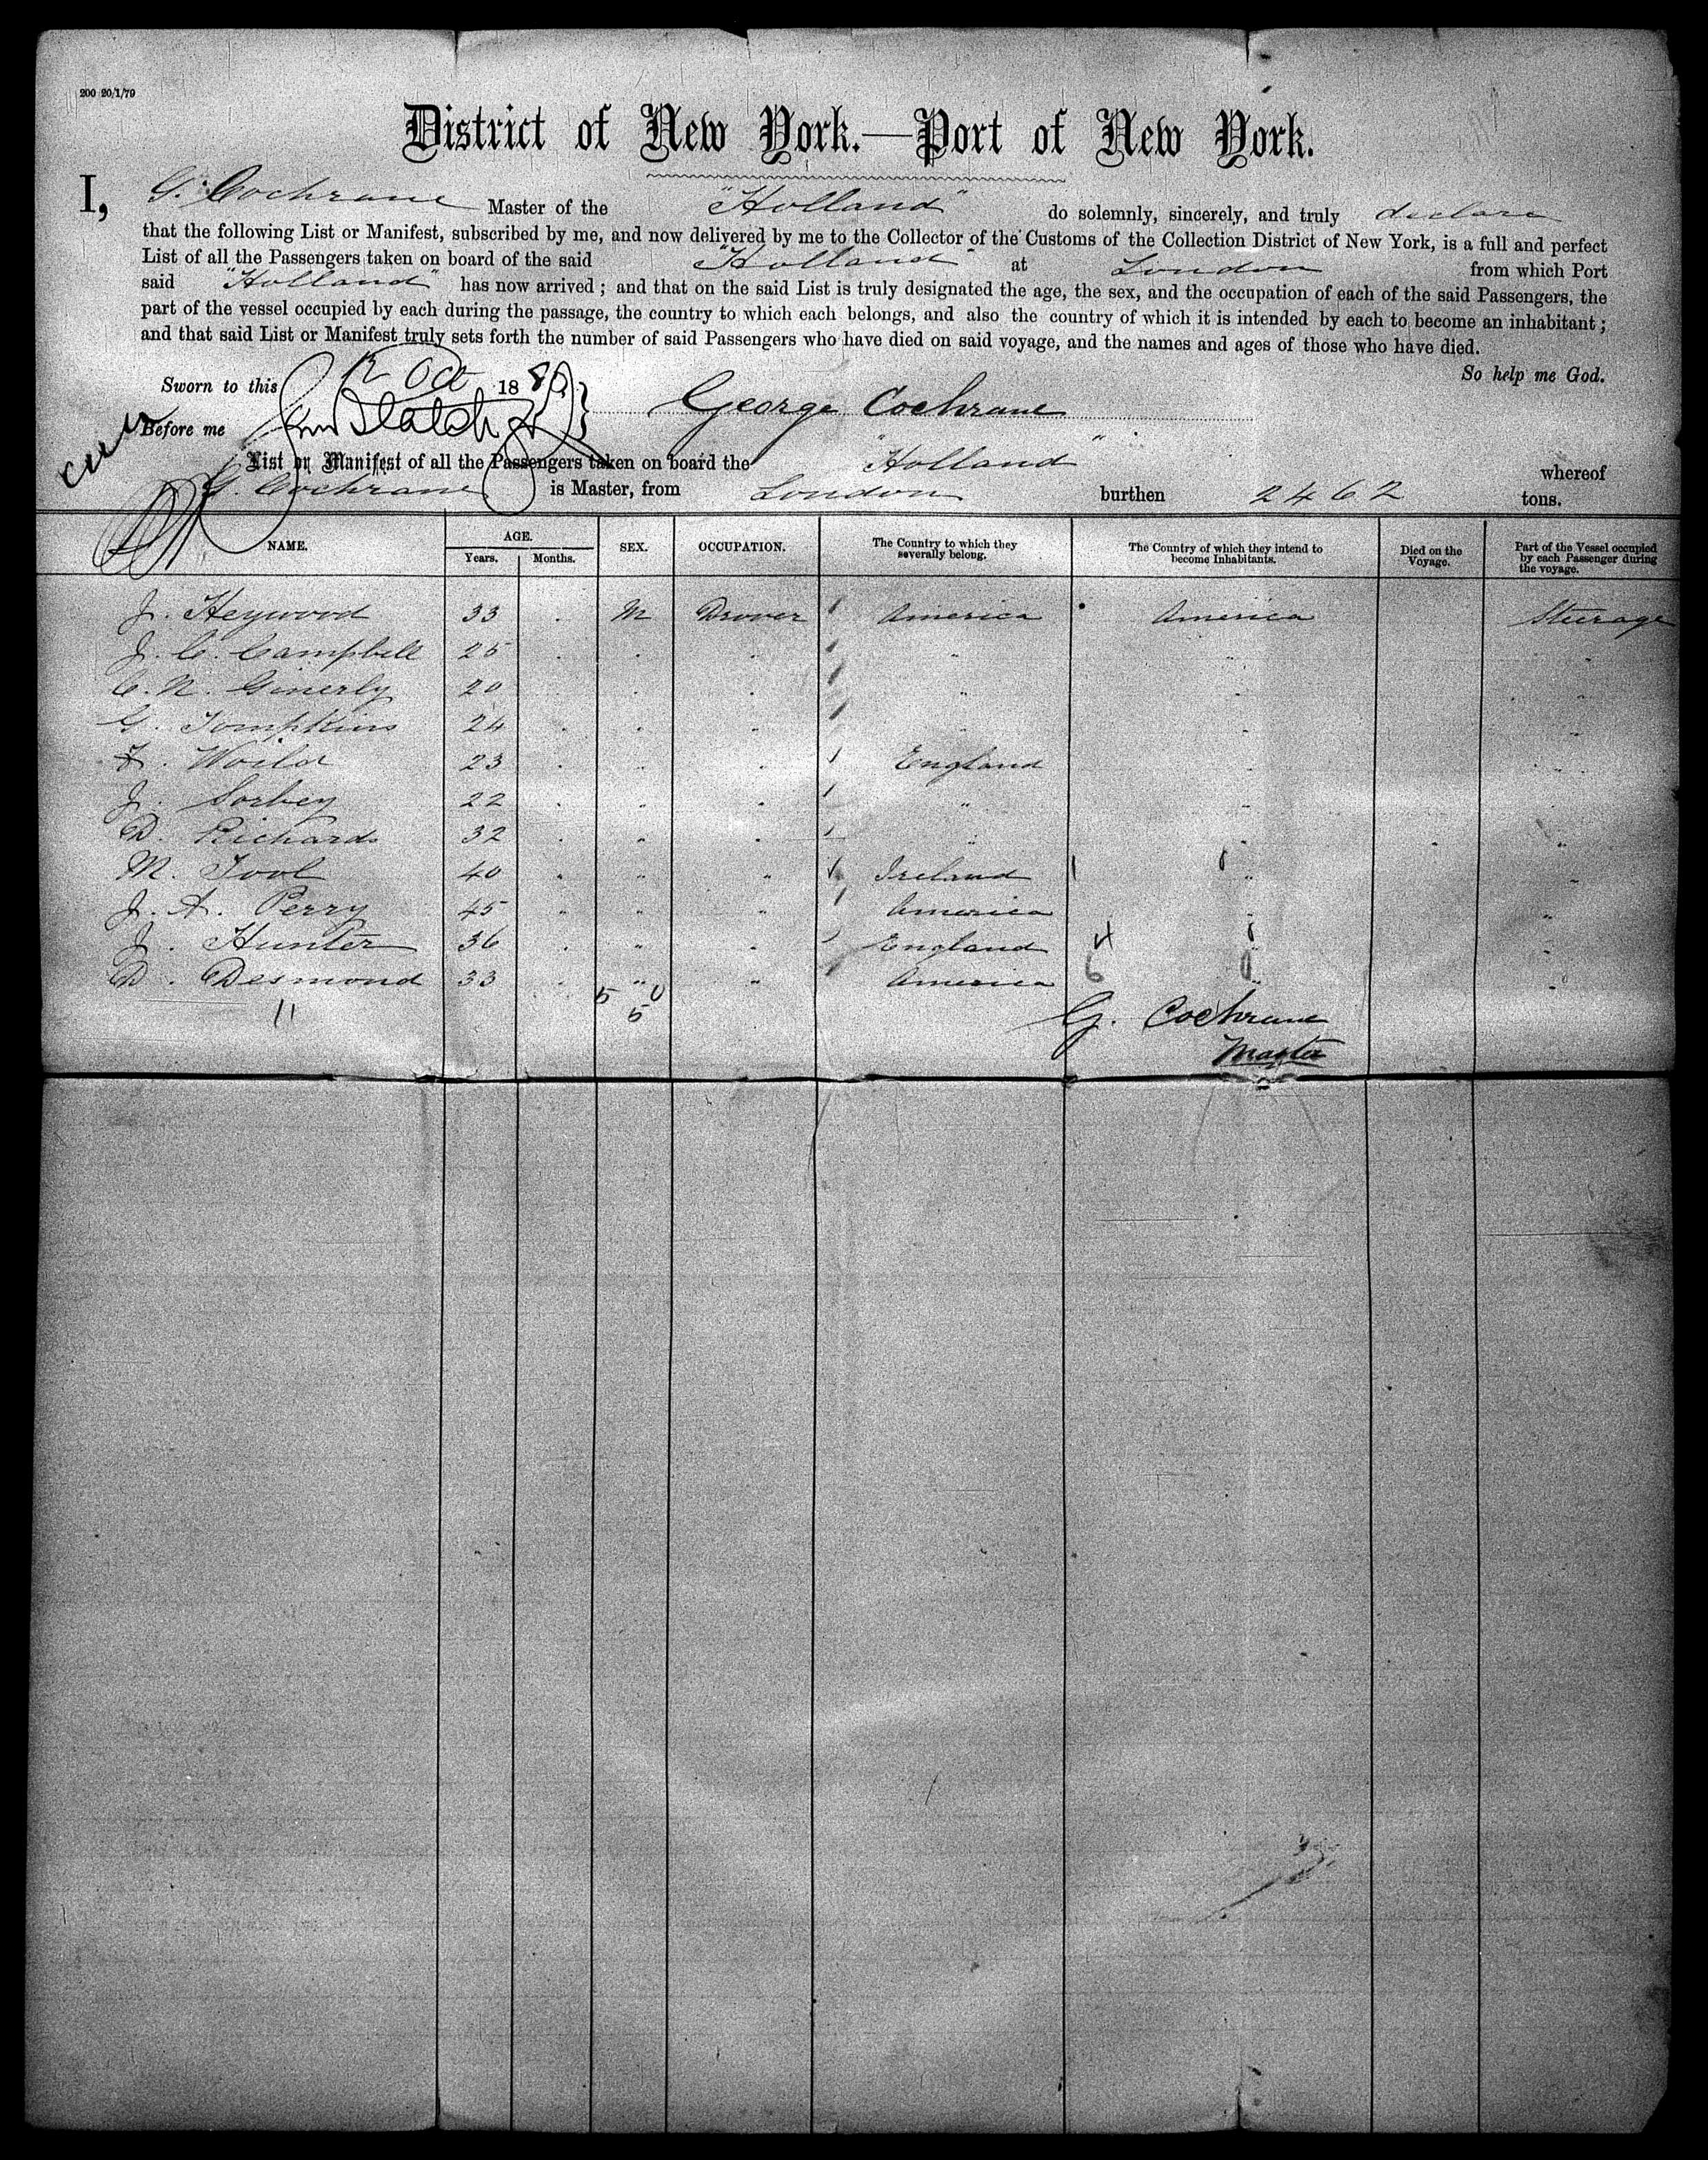 200 20/1/79
District of New York.—Port of New York.
I, G. Cochrane Master of the "Holland" do solemnly, sincerely, and truly declare
that the following List or Manifest, subscribed by me, and now delivered by me to the Collector of the Customs of the Collection District of New York, is a full and perfect
List of all the Passengers taken on board of the said "Holland" at London from which Port
said "Holland" has now arrived; and that on the said List is truly designated the age, the sex, and the occupation of each of the said Passengers, the
part of the vessel occupied by each during the passage, the country to which each belongs, and also the country of which it is intended by each to become an inhabitant;
and that said List or Manifest truly sets forth the number of said Passengers who have died on said voyage, and the names and ages of those who have died.
So help me God.
Sworn to this 12 Oct 1880
George Cochrane
Before me
List or Manifest of all the Passengers taken on board the "Holland" whereof
G. Cochrane is Master, from London burthen 2462 tons.
NAME. AGE. Years. Months. SEX. OCCUPATION. The Country to which they severally belong. The Country of which they intend to become Inhabitants. Died on the Voyage. Part of the Vessel occupied by each Passenger during the voyage.
J. Heywood 33 . M Drover America America Steerage
J. C. Campbell 25 . " " " " "
C. N. Ginerly 20 " " " " "
G. Tompkins 24 . " " " " "
23 . " " England " "
J. Sorbey 22 . " " " " "
D. Richards 32 . " " " " . "
M. Tool 40 " " " Ireland 1 " "
J. A. Perry 45 " " " America " "
J. Hunter 36 . " " England 4 " "
D. Desmond 33 . " " America 6 " "
11 5 0
5
G. Cochrane
Master